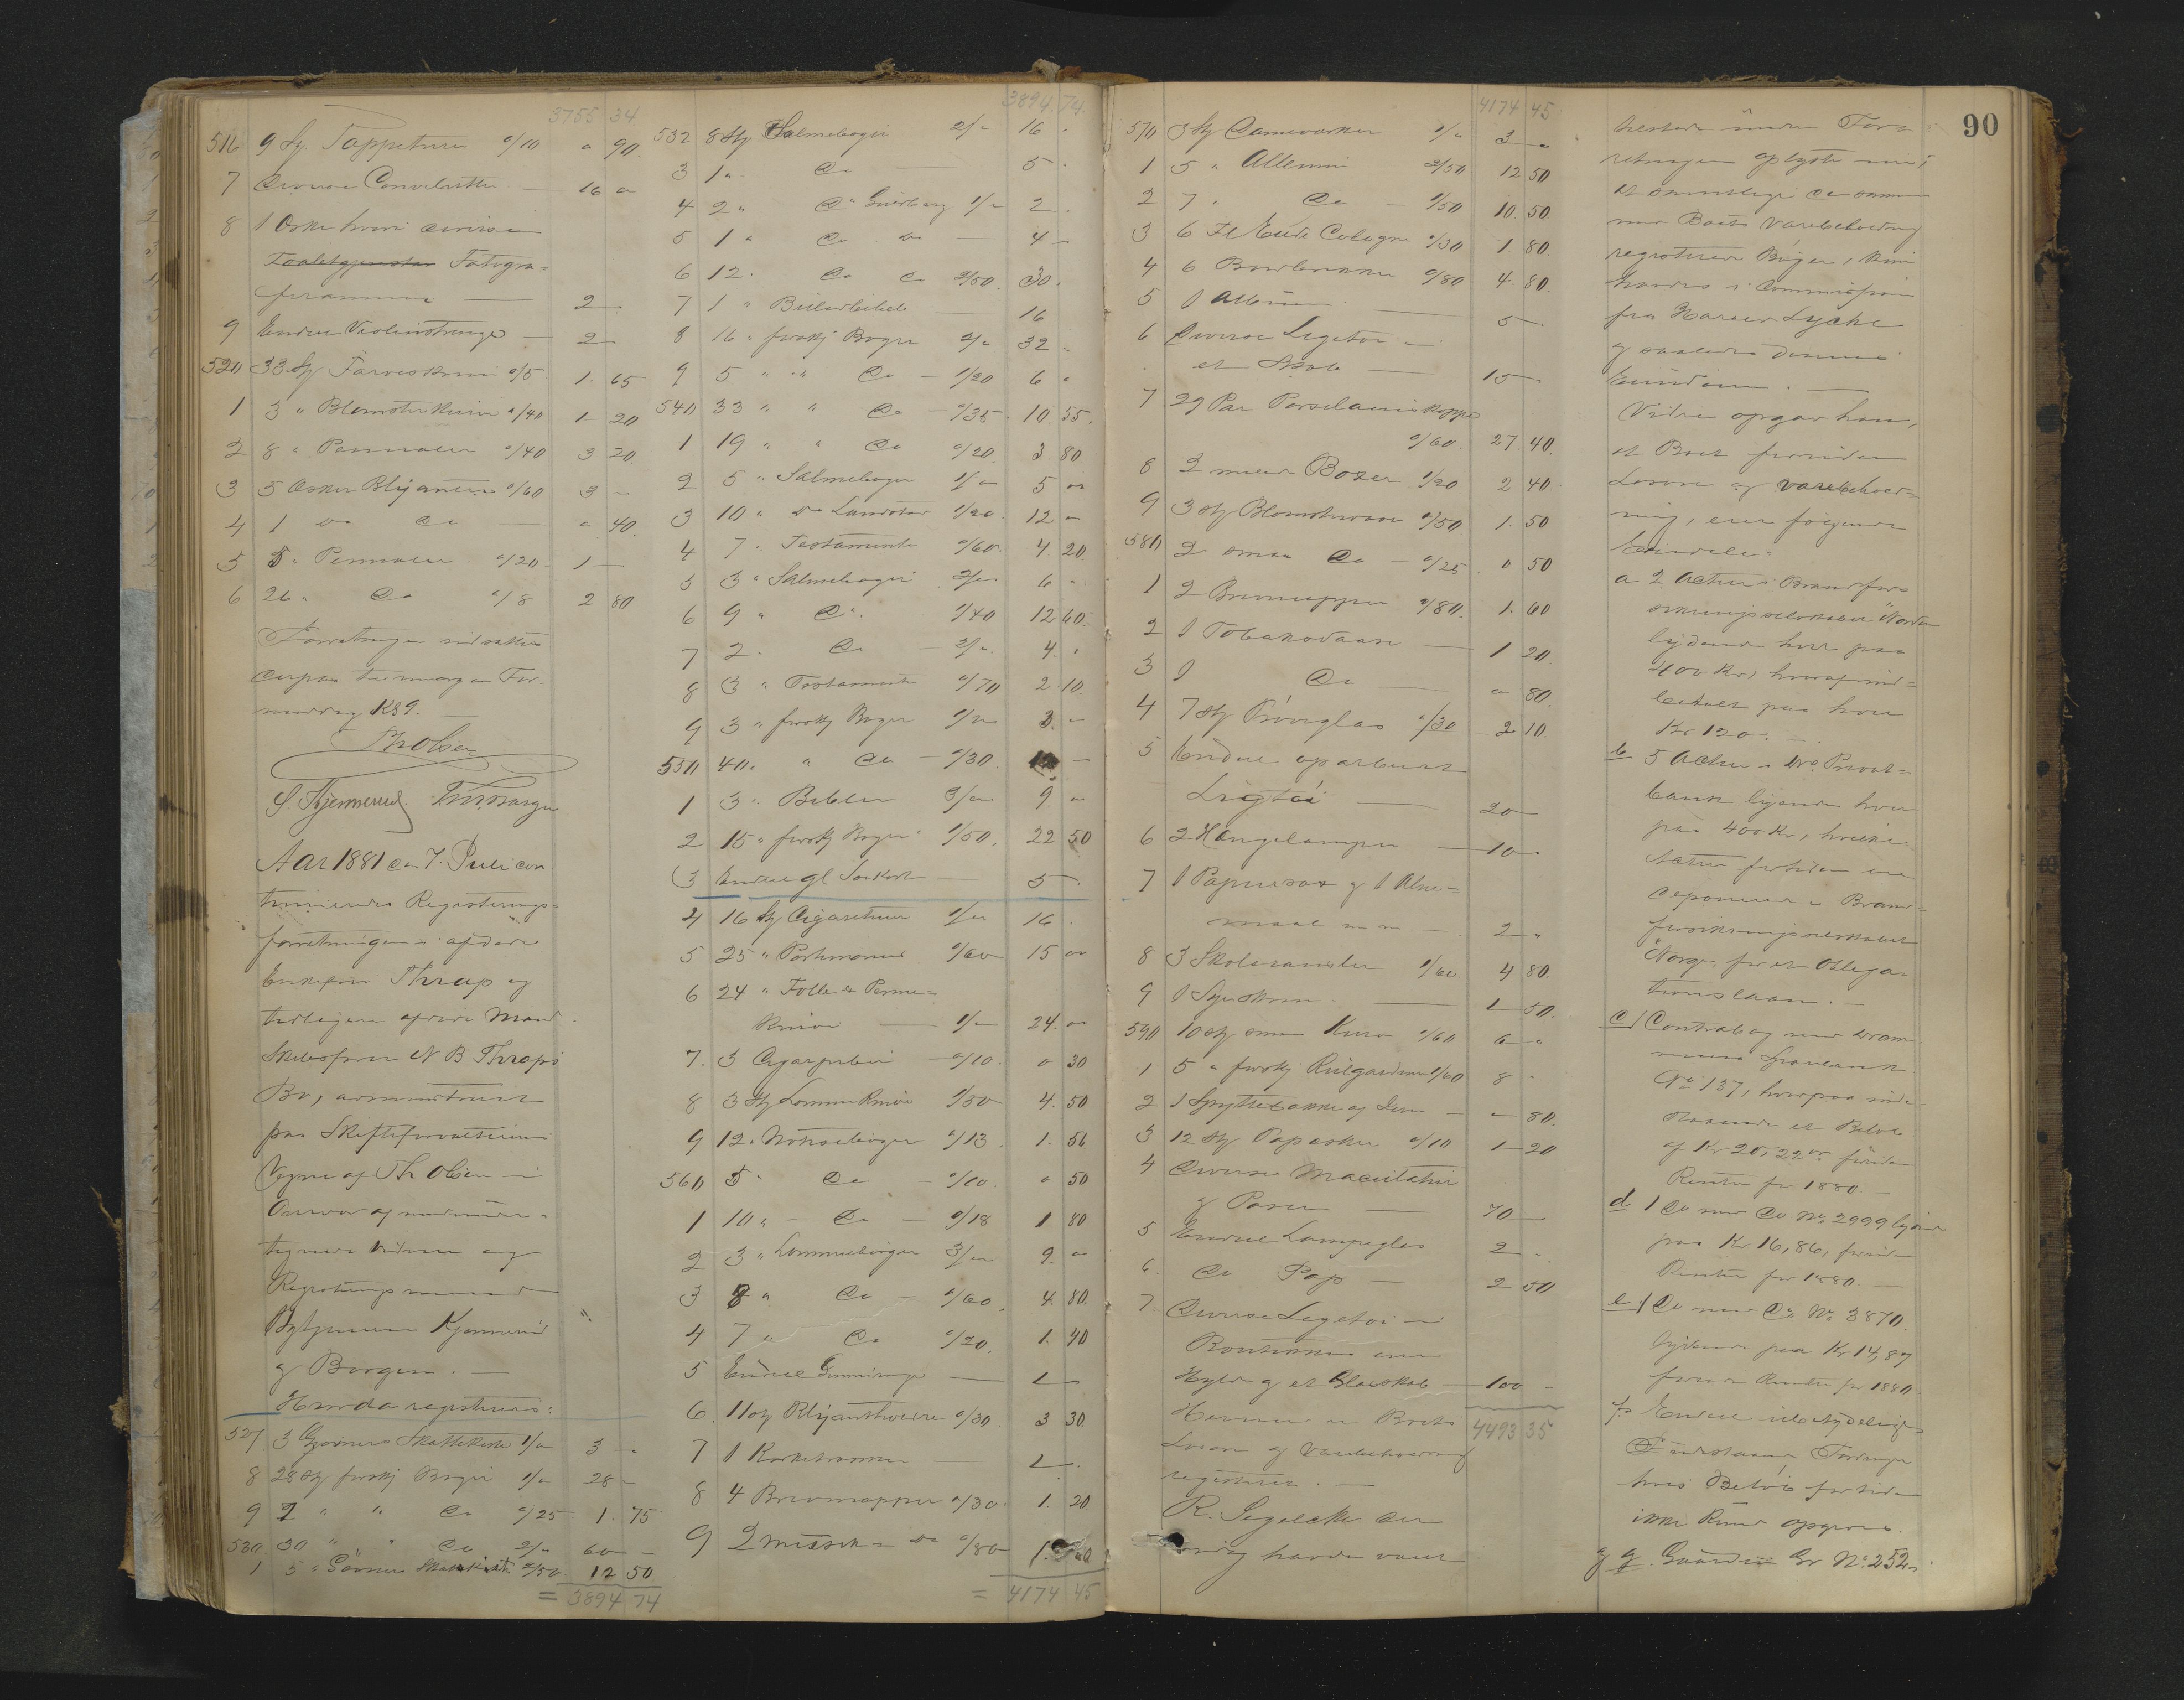 3755 34
516 9 St. Tappetrer a/10 " 90.
7 Diverse — 16 "
8 1 Æske hvori diverse
Fotogra=
— 2 -
9 Endeel Violinstrenge — 2 -
520 33 St Farveskrin a/5 1. 65
1 3 " Blomster a/40 1 20
2 8 " Pennaler a/40 3 20
3 5 Æsker Blyanter a/60 3 —
4 1 do Do — " 40.
5 5 " Pennaler a/20 1 —
6 26 " Do a/8 2 80
Forretningen udsattes
derpaa til imorgen For-
middag Kl 9.
Th Olsen
S. Kjennerud.
Aar 1881 den 7. Juli con
tinueredes Registrerings-
forretningen i afdøde
Enkefru Thrap og
tidligere afdøde Mand
Skibsfører N B Thraps
Bo, administreret
paa Skifteforvalterens
Vegne af Th Olsen i
Overvær af medunder-
tegnede Vidner og
Registreringsmænd
Kjennerud
og Borgen. —
Hvorda registreres:
527 3 Gjørners Skattekiste 1/" 3 -
8 28 St forskj Bøger 1/" 28 -
9 7 " " Do a/25 1. 75
530 30 " " Do 2/" 60 -
1 5 " Gørners Skatkiste 2/50 12 50
= 3894 74
3894 74
532 8 St Salmebøger 2/" 16 "
3 1 " Do — 5 "
4 2 " Do 1/" 2 "
5 1 " Do do — 4 -
6 12 " Do 2/50. 30 "
7 1 " Billedbibel — 16
8 16 " forskj Bøger 2/" 32 "
9 5 " " Do — 1/20 6 "
540 33 " " Do — a/35 10. 55.
1 19 " " Do a/20. 3 80
2 5 " Salmebøger 1/" 5 "
3 10 " do Landstad 1/20. 12 "
4 7 " Testamente a/60. 4. 20.
5 3 " Salmebøger 2/" 6 "
6 9 " Do 1/40 12 60.
7 2 " Do — 2/". 4. "
8 3 " Testamente a/70 2 10.
9 3 " forskj Bøger 1/" 3. -
550 40 " " Do — a/30. 12 —
1 3 " Bibler 3/" 9. "
2 15 " forskj Bøger 1/50. 22 50
3 Endeel gl — 5 -
4 16 St Cigaretuier 1/" 16 "
5 25 " Portmonnæ a/60 15 "
6 24 " Folle & Penne=
knive — 1/" 24 "
7. 3 — a/10. " 30
8 3 St Lommeknive 1/50 4. 50
9 12 " Notisebøger a/13 1. 56
560 5 " Do — a/10. " 50
1 10 " — Do — a/18 1 80
2 3 " Lommebøger 3/" 9. "
3 8 " Do — a/60. 4. 80.
4 7 " Do a/20. 1. 40
5 Endeel Gummiringe — 1 —
6. 11 St Blyantholdere a/30. 3 30.
7 1 — 1 —
8 4 Brevmapper a/30. 1. 20
9 2 Musik= do a/80
= 4174 45
4174 45
570 3 St 1/" 3 "
1 5 " Albumi 2/50 12 50
2 7 " Do — 1/50 10. 50.
3 6 Fl Eude Cologne a/30 1 80.
4 6 a/80 4. 80.
5 1 Album — 5 -
6 Diverse Legetøi i
et Skab — 15 -
7 29 Par Porselains Kopper
a/60. 27. 40.
8 2 Boxer 1/20 2 40.
9 3 St Blomstervaser a/50 1. 50
580 2 smaa Do — a/25 . 0 50
1 2 Brevmapper a/80. 1. 60
2 1 Tobaksdaase — 1 20.
3 1 Do — " 80.
4 7 St Prøveglas a/30 2 10.
5 Endeel oparbeidet
Ligtøi — 20 -
6 2 Hængelamper — 10 -
7 1 Papirsax og 1 Alne-
maal m m — 2 "
8 3 Skoleransler 1/60 4 80.
9 1 Syeskrin. — 1 50.
590 10 St smaa Kurve a/60 6 "
1 5 " forskj 1/60 8 -
2 1 Spyttebakke af Jern — " 80.
3 12 St Papæsker a/10 1 20
4 Diverse Maculatur
og Poser — 70 —
5 Endeel Lampeglas 2 -
6. Do Pap — 2 50
7. Diverse Legetøi i
Boutikken
Hylde og et Glasskab — 100 -
Hermed er Boets 4493 35
Løsøre og Varebeholdning
registreret. —
R. Segelcke der
havde været
90
tilstede under For=
retningen oplyste
at samtlige de
med Boets Varebeholdning
registrerede Bøger,
havdes i Commission
fra Lycke
og saaledes dennes
Eiendom. —
Videre opgav han,
at Boet foruden
Løsøre og Varebehold=
ning, eier følgende
Eiendele:
a 2 Actier i Brandfor=
sikringsselskabet "Norden"
lydende hver paa
400 Kr, hvoraf ind=
betalt paa hver
Kr 120. —
b 5 Actier i Privat=
bank lydende hver
paa 400 Kr, hvilke
Actier fortiden ere
deponeret i Brand=
forsikringsselskabet
Norge for et Obliga=
tionslaan. —
c/ Contrabog med Dram
mens Sparebank
No 137, hvorpaa inde=
staaende et Beløb
af Kr 20,22 foruden
Renter for 1880. —
d 1 Do med Do No 2999 lydende
paa Kr 16,86, foruden
Renter for 1880. —
e/ 1 Do med Do No 3870.
lydende paa Kr 14,87
foruden Renter for 1880.
f. Endeel ubetydelige
Fordringer
hvis Beløb fortiden
ikke kunde opgives.
g g. Gaarden Gr No. 252.